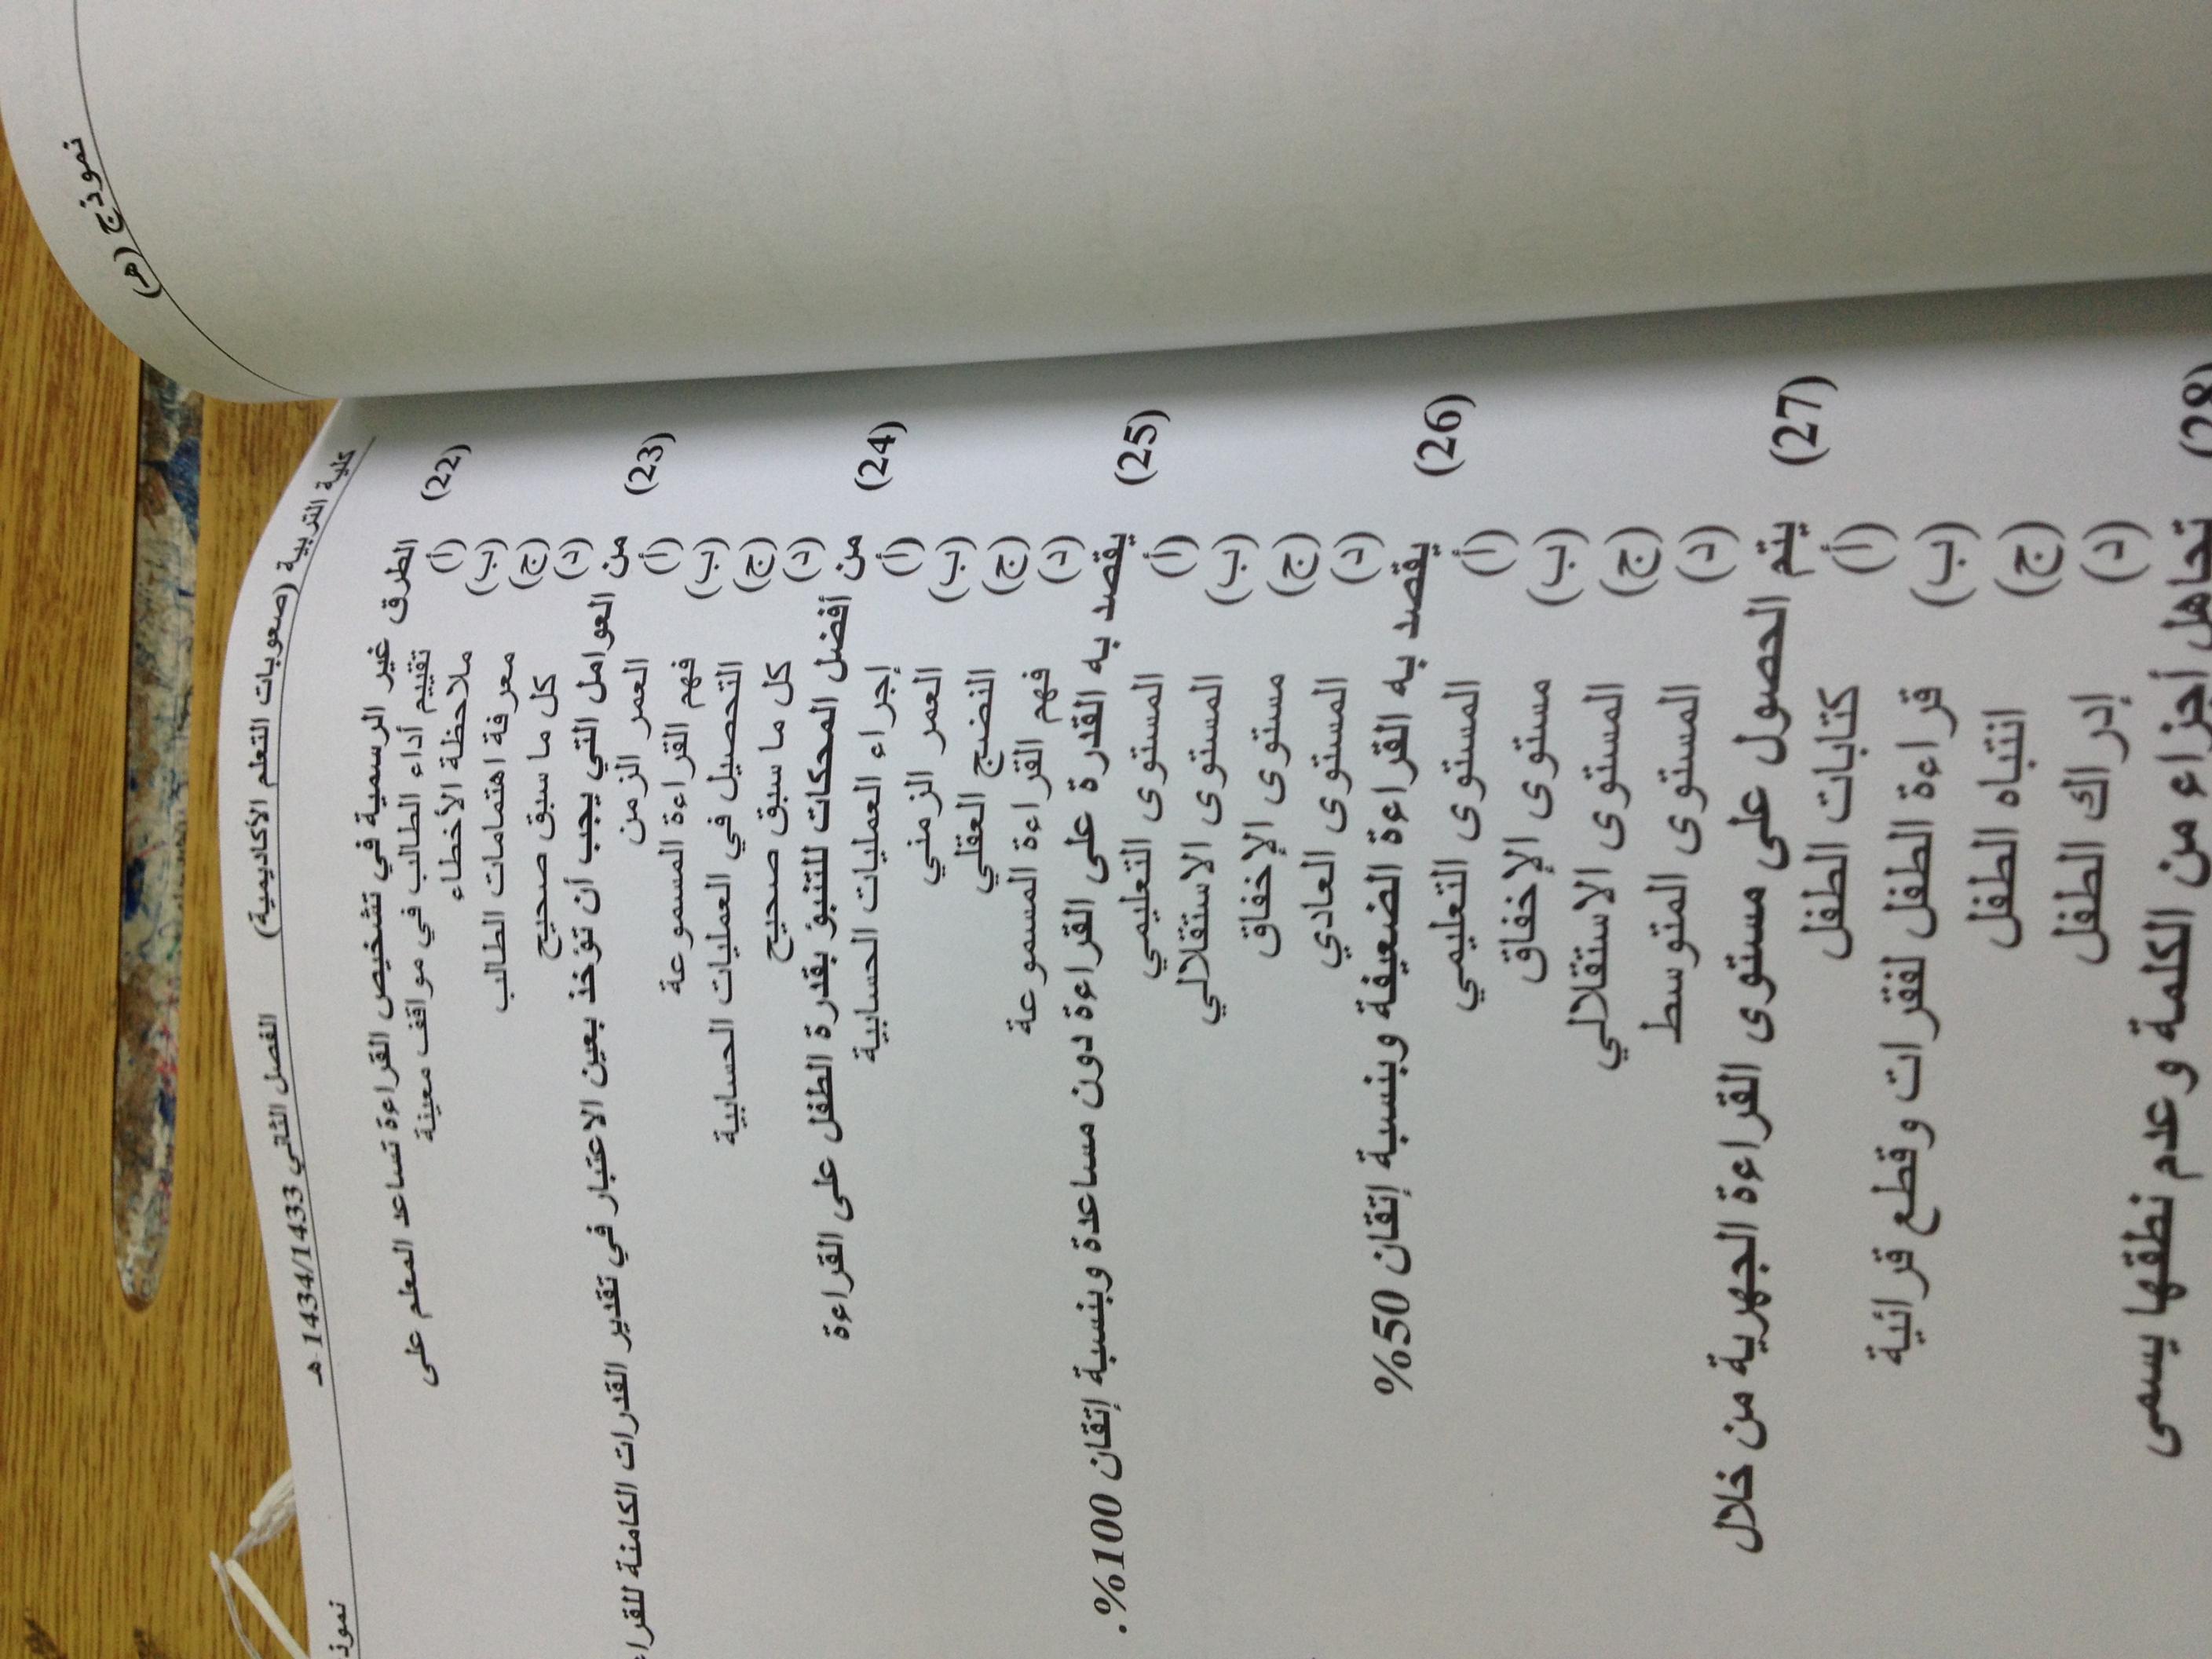 نموذج (هـ)
كلية التربية (صعوبات التعلم الأكاديمية) الفصل الثاني 1434/1433 هـ
(22) الطرق غير الرسمية في تشخيص القراءة تساعد المعلم على
(أ) تقييم أداء الطالب في مواقف معينة
(ب) ملاحظة الأخطاء
(ج) معرفة اهتمامات الطالب
(د) كل ما سبق صحيح
(23) من العوامل التي يجب أن تؤخذ بعين الاعتبار في تقدير القدرات الكامنة
(أ) العمر الزمن
(ب) فهم القراءة المسموعة
(ج) التحصيل في العمليات الحسابية
(د) كل ما سبق صحيح
(24) من أفضل المحكات للتنبؤ بقدرة الطفل على القراءة
(أ) إجراء العمليات الحسابية
(ب) العمر الزمني
(ج) النضج العقلي
(د) فهم القراءة المسموعة
(25) يقصد به القدرة على القراءة دون مساعدة وبنسبة إتقان 100%.
(أ) المستوى التعليمي
(ب) المستوى الاستقلالي
(ج) مستوى الإخفاق
(د) المستوى العادي
(26) يقصد به القراءة الضعيفة وبنسبة إتقان 50%
(أ) المستوى التعليمي
(ب) مستوى الإخفاق
(ج) المستوى الاستقلالي
(د) المستوى المتوسط
(27) يتم الحصول على مستوى القراءة الجهرية من خلال
(أ) كتابات الطفل
(ب) قراءة الطفل لفقرات وقطع قرائية
(ج) انتباه الطفل
(د) إدراك الطفل
(28) تجاهل أجزاء من الكلمة وعدم نطقها يسمى